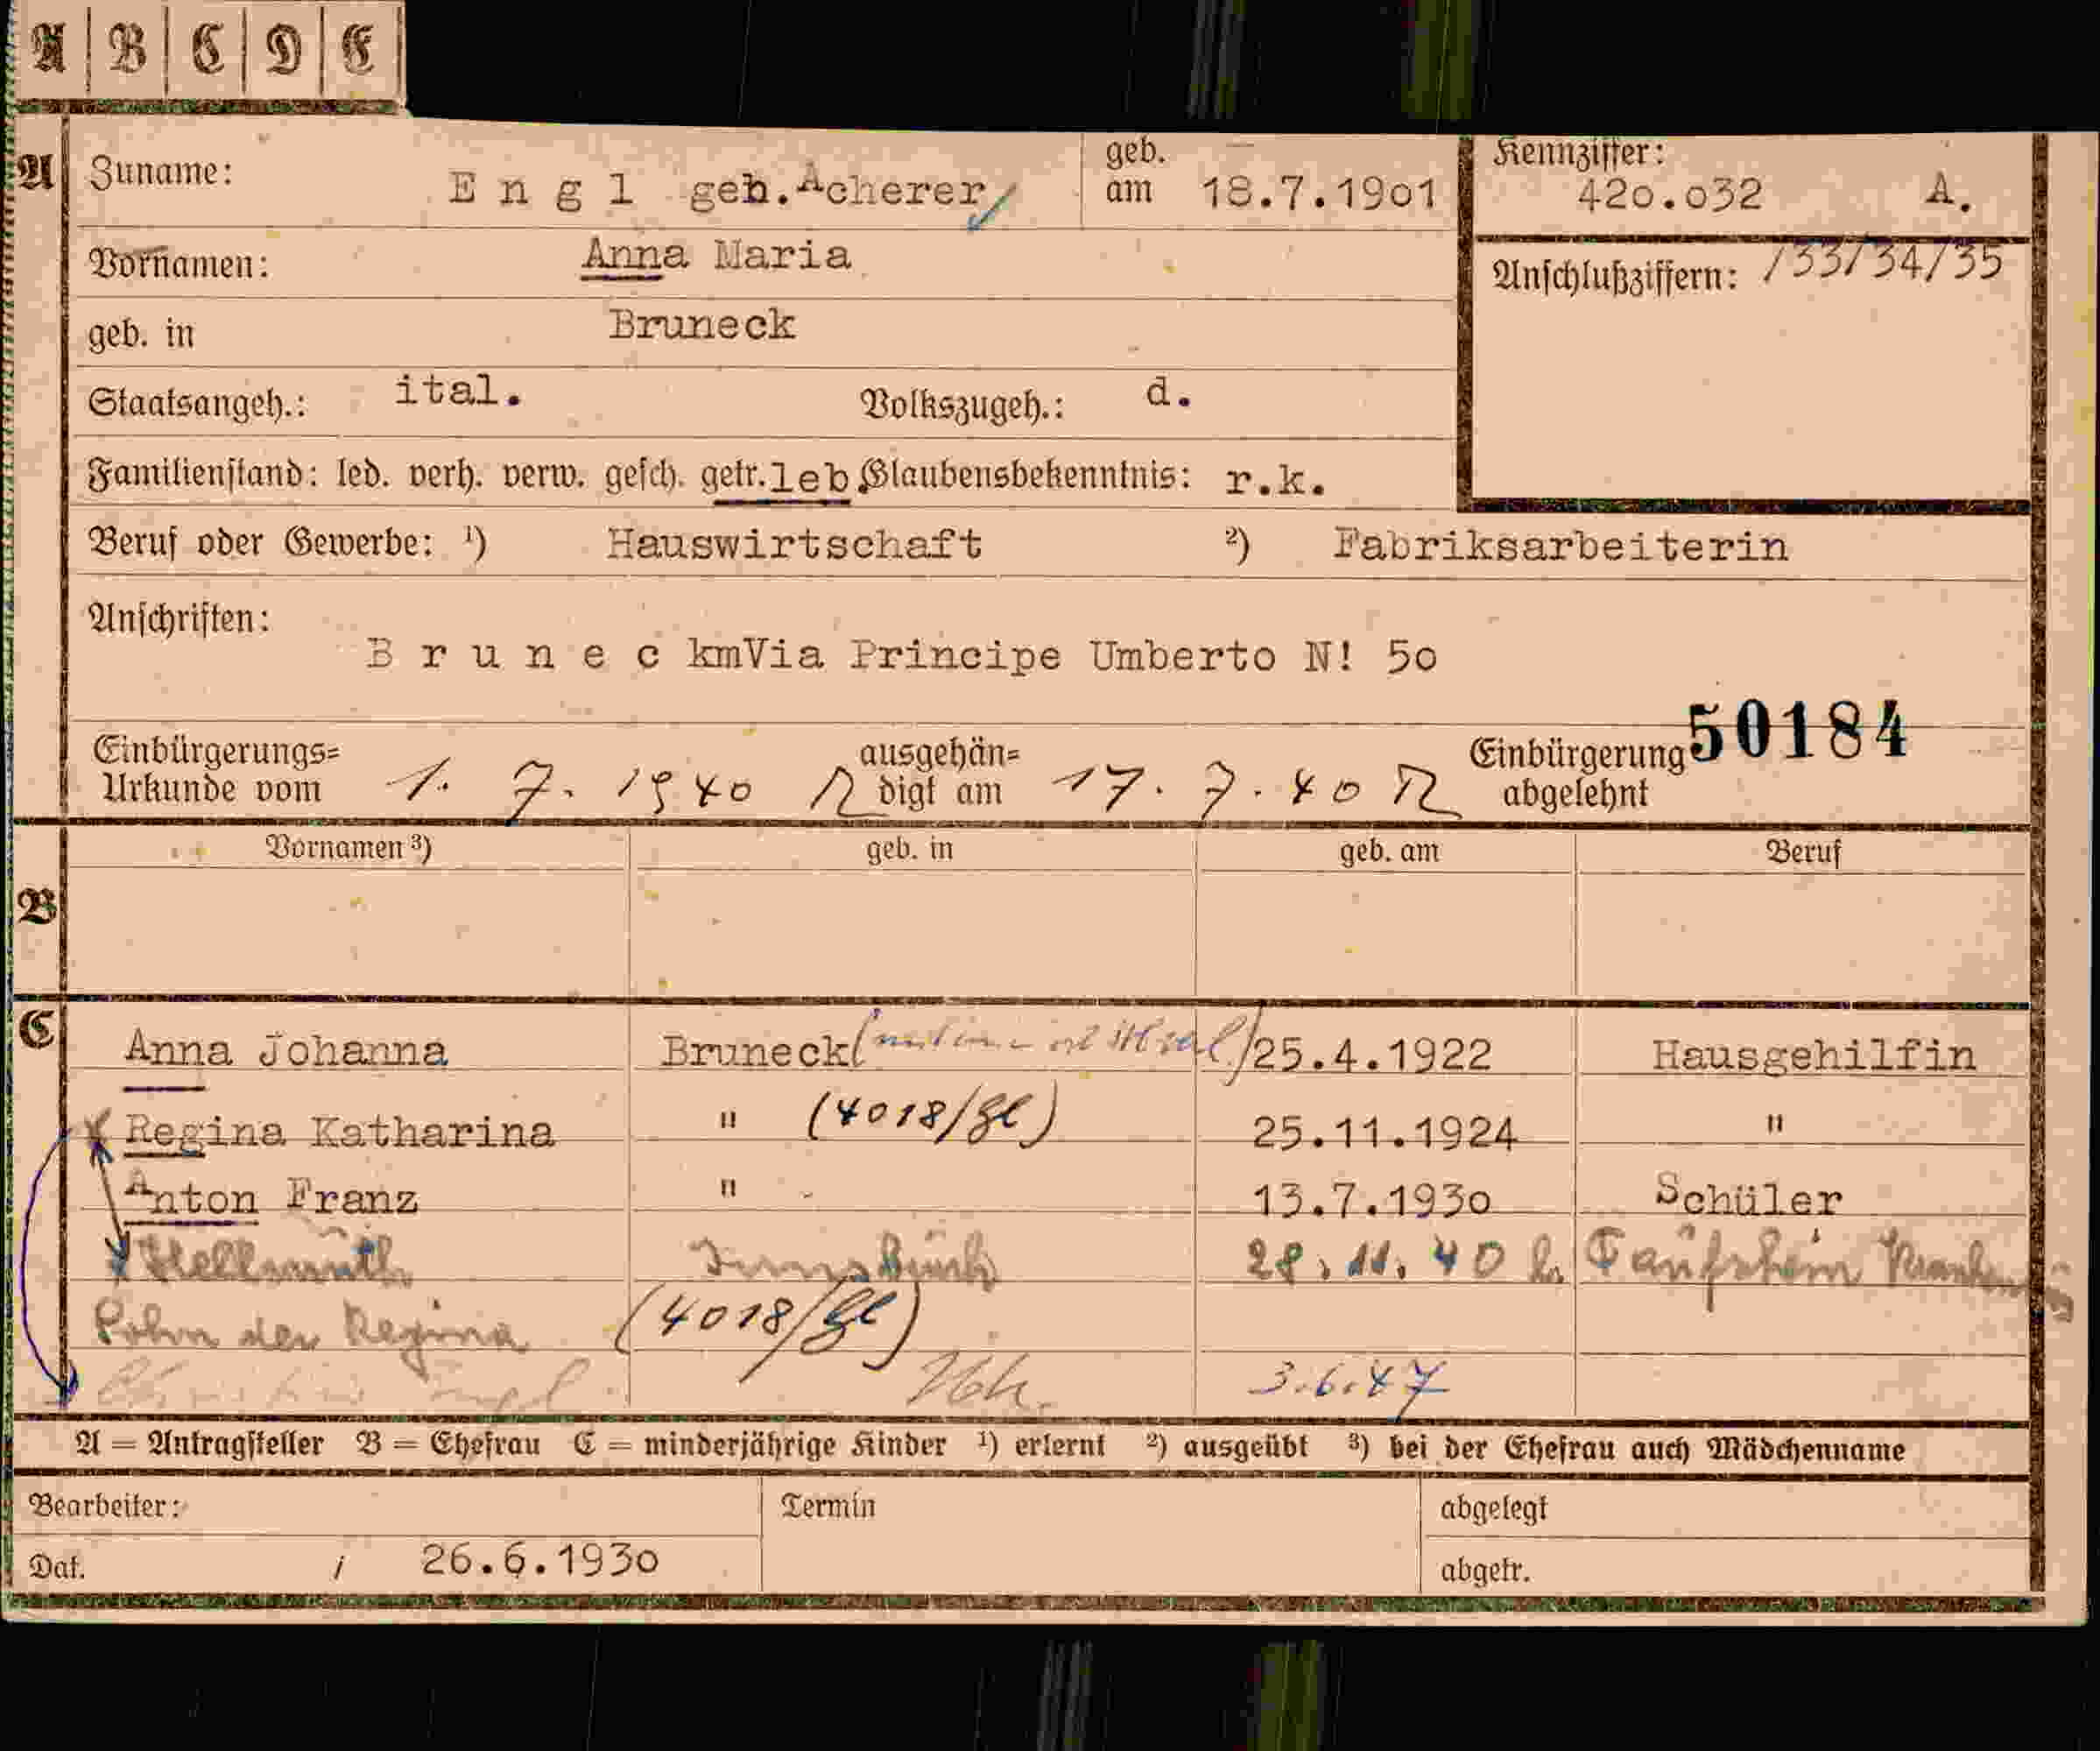 A | B | C | D | E
A Zuname: Engl geb. Acherer geb. am 18.7.1901 Kennziffer: 420.032 A.
Vornamen: Anna Maria Anschlußziffern: /33/34/35
geb. in Bruneck
Staatsangeh.: ital. Volkszugeh.: d.
Familienstand: led. verh. verw. gesch. getr.leb. Glaubensbekenntnis: r.k.
Beruf oder Gewerbe: ¹) Hauswirtschaft ²) Fabriksarbeiterin
Anschriften:
B r u n e c kmVia Principe Umberto N! 50
Einbürgerungs= ausgehän= Einbürgerung 50184
Urkunde vom 1. 7. 1940 digt am 17. 7. 40 abgelehnt
Vornamen ³) geb. in geb. am Beruf
B
C Anna Johanna Bruneck 25.4.1922 Hausgehilfin
Regina Katharina " (4018/gl) 25.11.1924 "
Anton Franz " 13.7.1930 Schüler
Hellmuth Innsbruck 28.11.40 Taufschein
Sohn der Regina (4018/gl)
3.6.47
A = Antragsteller B = Ehefrau C = minderjährige Kinder ¹) erlernt ²) ausgeübt ³) bei der Ehefrau auch Mädchenname
Bearbeiter: Termin abgelegt
Dat. / 26.6.1930 abgetr.